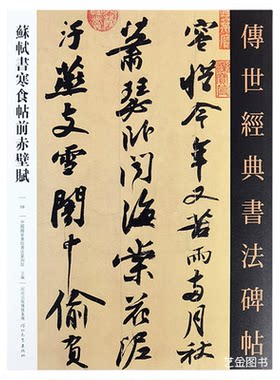 傳世經典書法碑帖
容惜今年又苦雨兩月秋
蕭瑟卧聞海棠花泥
汙燕支雪闇中偷負
蘇軾書寒食帖前赤壁賦
艺金图书